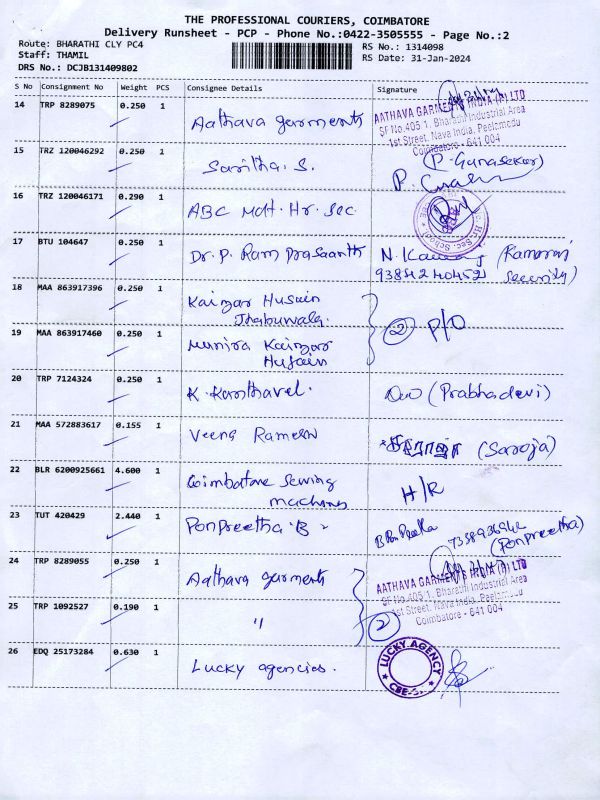 THE PROFESSIONAL COURIERS, COIMBATORE
Delivery Runsheet - PCP - Phone No.:0422-3505555 - Page No.:2
Route: BHARATHI CLY PC4 RS No.: 1314098
Staff: THAMIL RS Date: 31-Jan-2024
DRS No.: DCJB131409802
S No Consignment No Weight PCS Consignee Details Signature
14 TRP 8289075 0.250 1 Aathava garments
AATHAVA GARMENTS INDIA (P) LTD
SF No.405 1, Bharathi Industrial Area
1st Street, Nava India, Peelamedu
Coimbatore - 641 004
15 TRZ 120046292 0.250 1 Saritha. S. (P. Gunasekar)
16 TRZ 120046171 0.290 1 ABC Mat. Hr. Sec.
17 BTU 104647 0.250 1 Dr. P. Ram Prasaanth
9384240452 Security)
18 MAA 863917396 0.250 1 Kaizar Husain
Jhabuwala.
② P/O
19 MAA 863917460 0.250 1 Munira Kaizar
Husain
20 TRP 7124324 0.250 1 K. Kanthavel. (Prabhadevi)
21 MAA 572883617 0.155 1 Veena Ramesh (Saroja)
22 BLR 6200925661 4.600 1 Coimbatore Sewing
machines H/R
23 TUT 420429 2.440 1 Ponpreetha B
(Ponpreetha)
24 TRP 8289055 0.250 1 Aathava garments
AATHAVA GARMENTS INDIA (P) LTD
SF No.405 1, Bharathi Industrial Area
1st Street, Nava India, Peelamedu
Coimbatore - 641 004
25 TRP 1092527 0.190 1 " ②
26 EDQ 25173284 0.630 1 Lucky agencies. LUCKY AGENCY